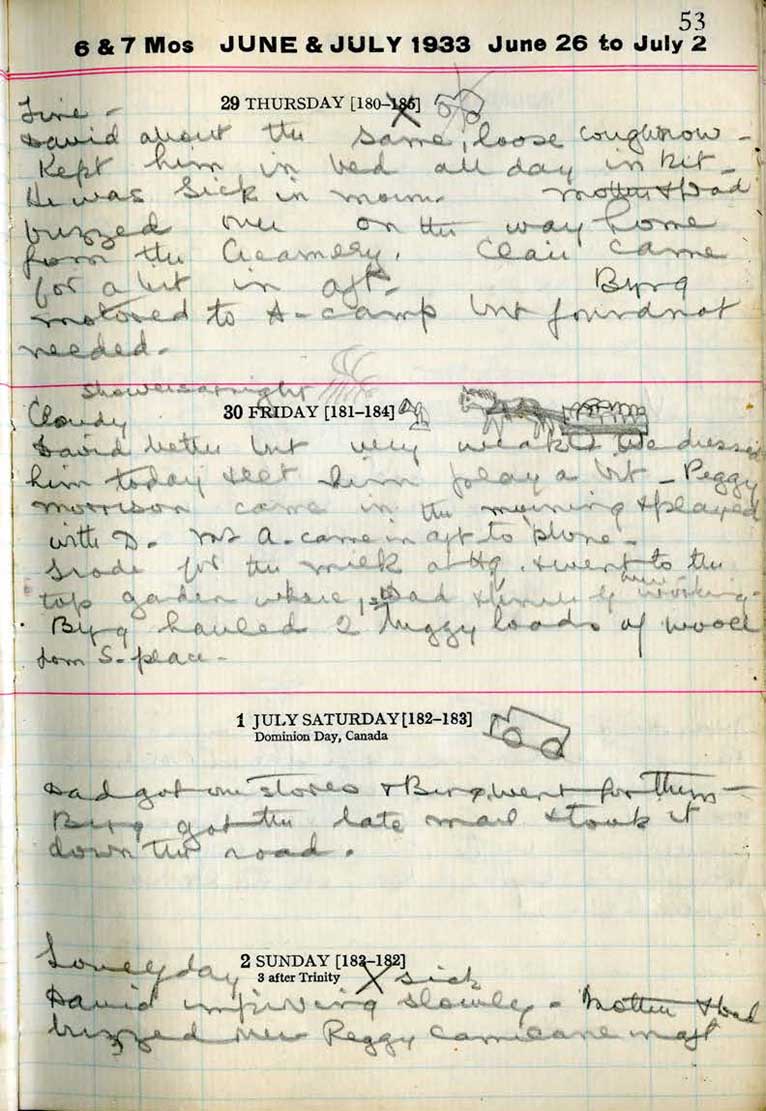 53
6 & 7 Mos JUNE & JULY 1933 June 26 to July 2
29 THURSDAY [180–185]
Fine -
David about the same, loose cough now -
Kept him in bed all day in kit -
He was sick in morn. Mother & Dad
buzzed over on the way home
from the Creamery. Clair came
for a bit in aft -
Byrg
motored to A-camp but found not
needed -
showers at night
30 FRIDAY [181–184]
Cloudy
David better but very weak & dressed
him today & let him play a bit - Peggy
Morrison came in the morning & played
with D. Mrs A. came in aft to 'phone -
I rode for the milk at & went to the
top garden where Dad & were working -
Byrg hauled 2 buggy loads of wood
from S-place -
1 JULY SATURDAY [182–183]
Dominion Day, Canada
Dad got our stores & Byrg went for them -
Byrg got the late mail & took it
down the road.
2 SUNDAY [183–182]
3 after Trinity
Lovely day
sick
David improving slowly - Mother & Dad
buzzed over Peggy came in aft